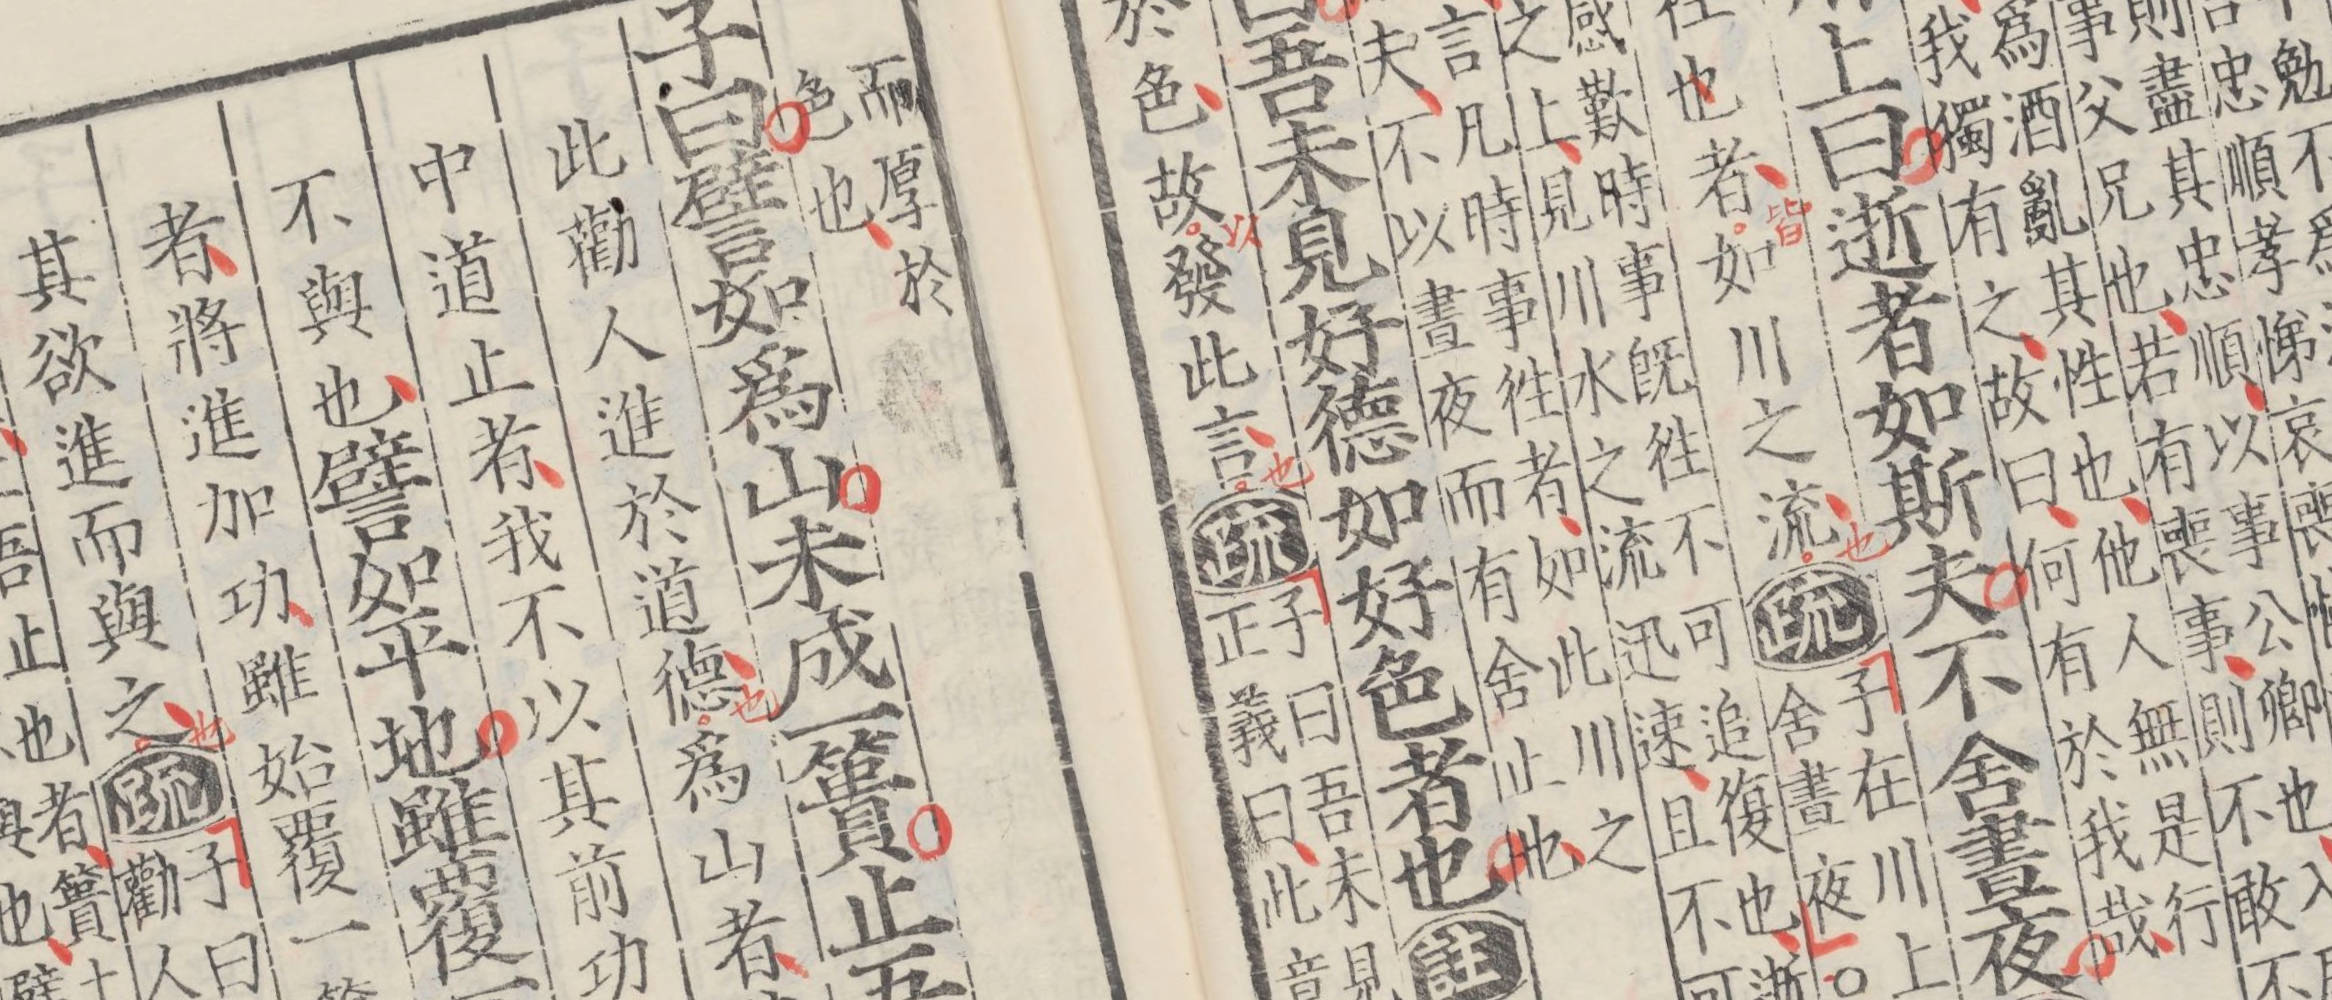 勉不爲
言忠順孝悌哀喪
則盡其忠順以事公卿也入
事父兄也若有喪事則不敢不
爲酒亂其性也他人無是行
我獨有之故曰何有於我哉
川上曰逝者如斯夫不舍晝夜
往也者皆如川之流也疏子在川上
舍晝夜
感歎時事既徃不可追復也逝
之上見川水之流迅速且不可
言凡時事徃者如此川之
夫不以晝夜而有舍止也
曰吾未見好德如好色者也註
於色故以發此言也疏子曰吾未見
正義曰此章
而厚於
色也
子曰譬如爲山未成一簣止吾
此勸人進於道德也爲山者
中道止者我不以其前功
不與也譬如平地雖覆一
者將進加功雖始覆一簣
其欲進而與之也疏子曰
勸人
吾止也者簣土
與也譬